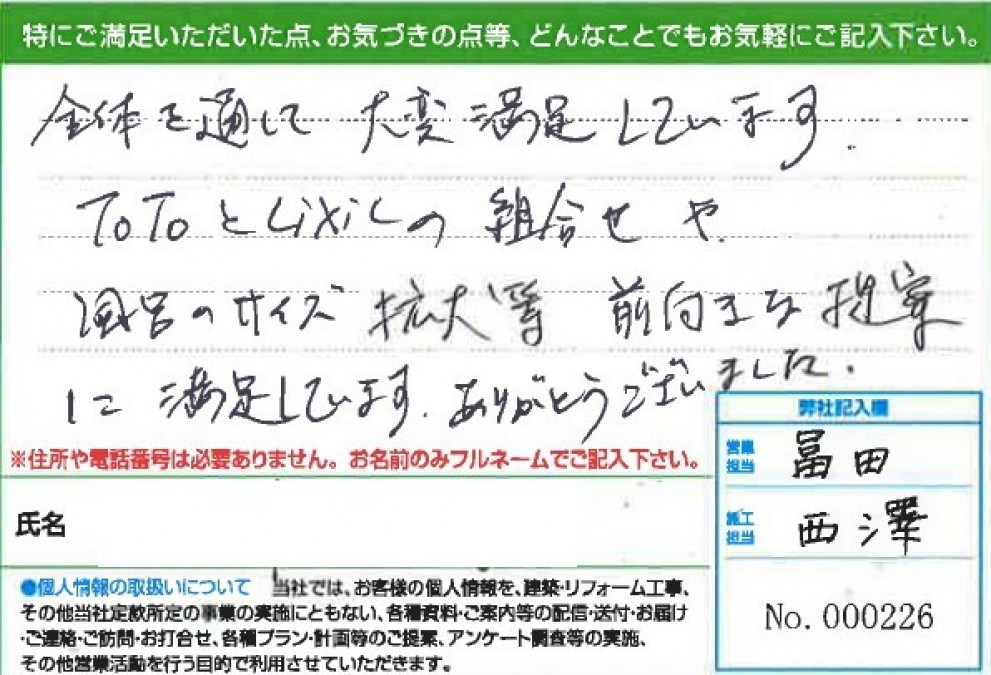 特にご満足いただいた点、お気づきの点等、どんなことでもお気軽にご記入下さい。
全体を通して 大変満足しています.
ToToとLiXiLの 組合せ や
風呂のサイズ 拡大等 前向きな提案
に 満足しています. ありがとうございました.
※住所や電話番号は必要ありません。お名前のみフルネームでご記入下さい。
氏名
弊社記入欄
営業担当 冨田
施工担当 西澤
No.000226
●個人情報の取扱いについて 当社では、お客様の個人情報を、建築・リフォーム工事、
その他当社定款所定の事業の実施にともない、各種資料・ご案内等の配信・送付・お届け
・ご連絡・ご訪問・お打合せ、各種プラン・計画等のご提案、アンケート調査等の実施、
その他営業活動を行う目的で利用させていただきます。